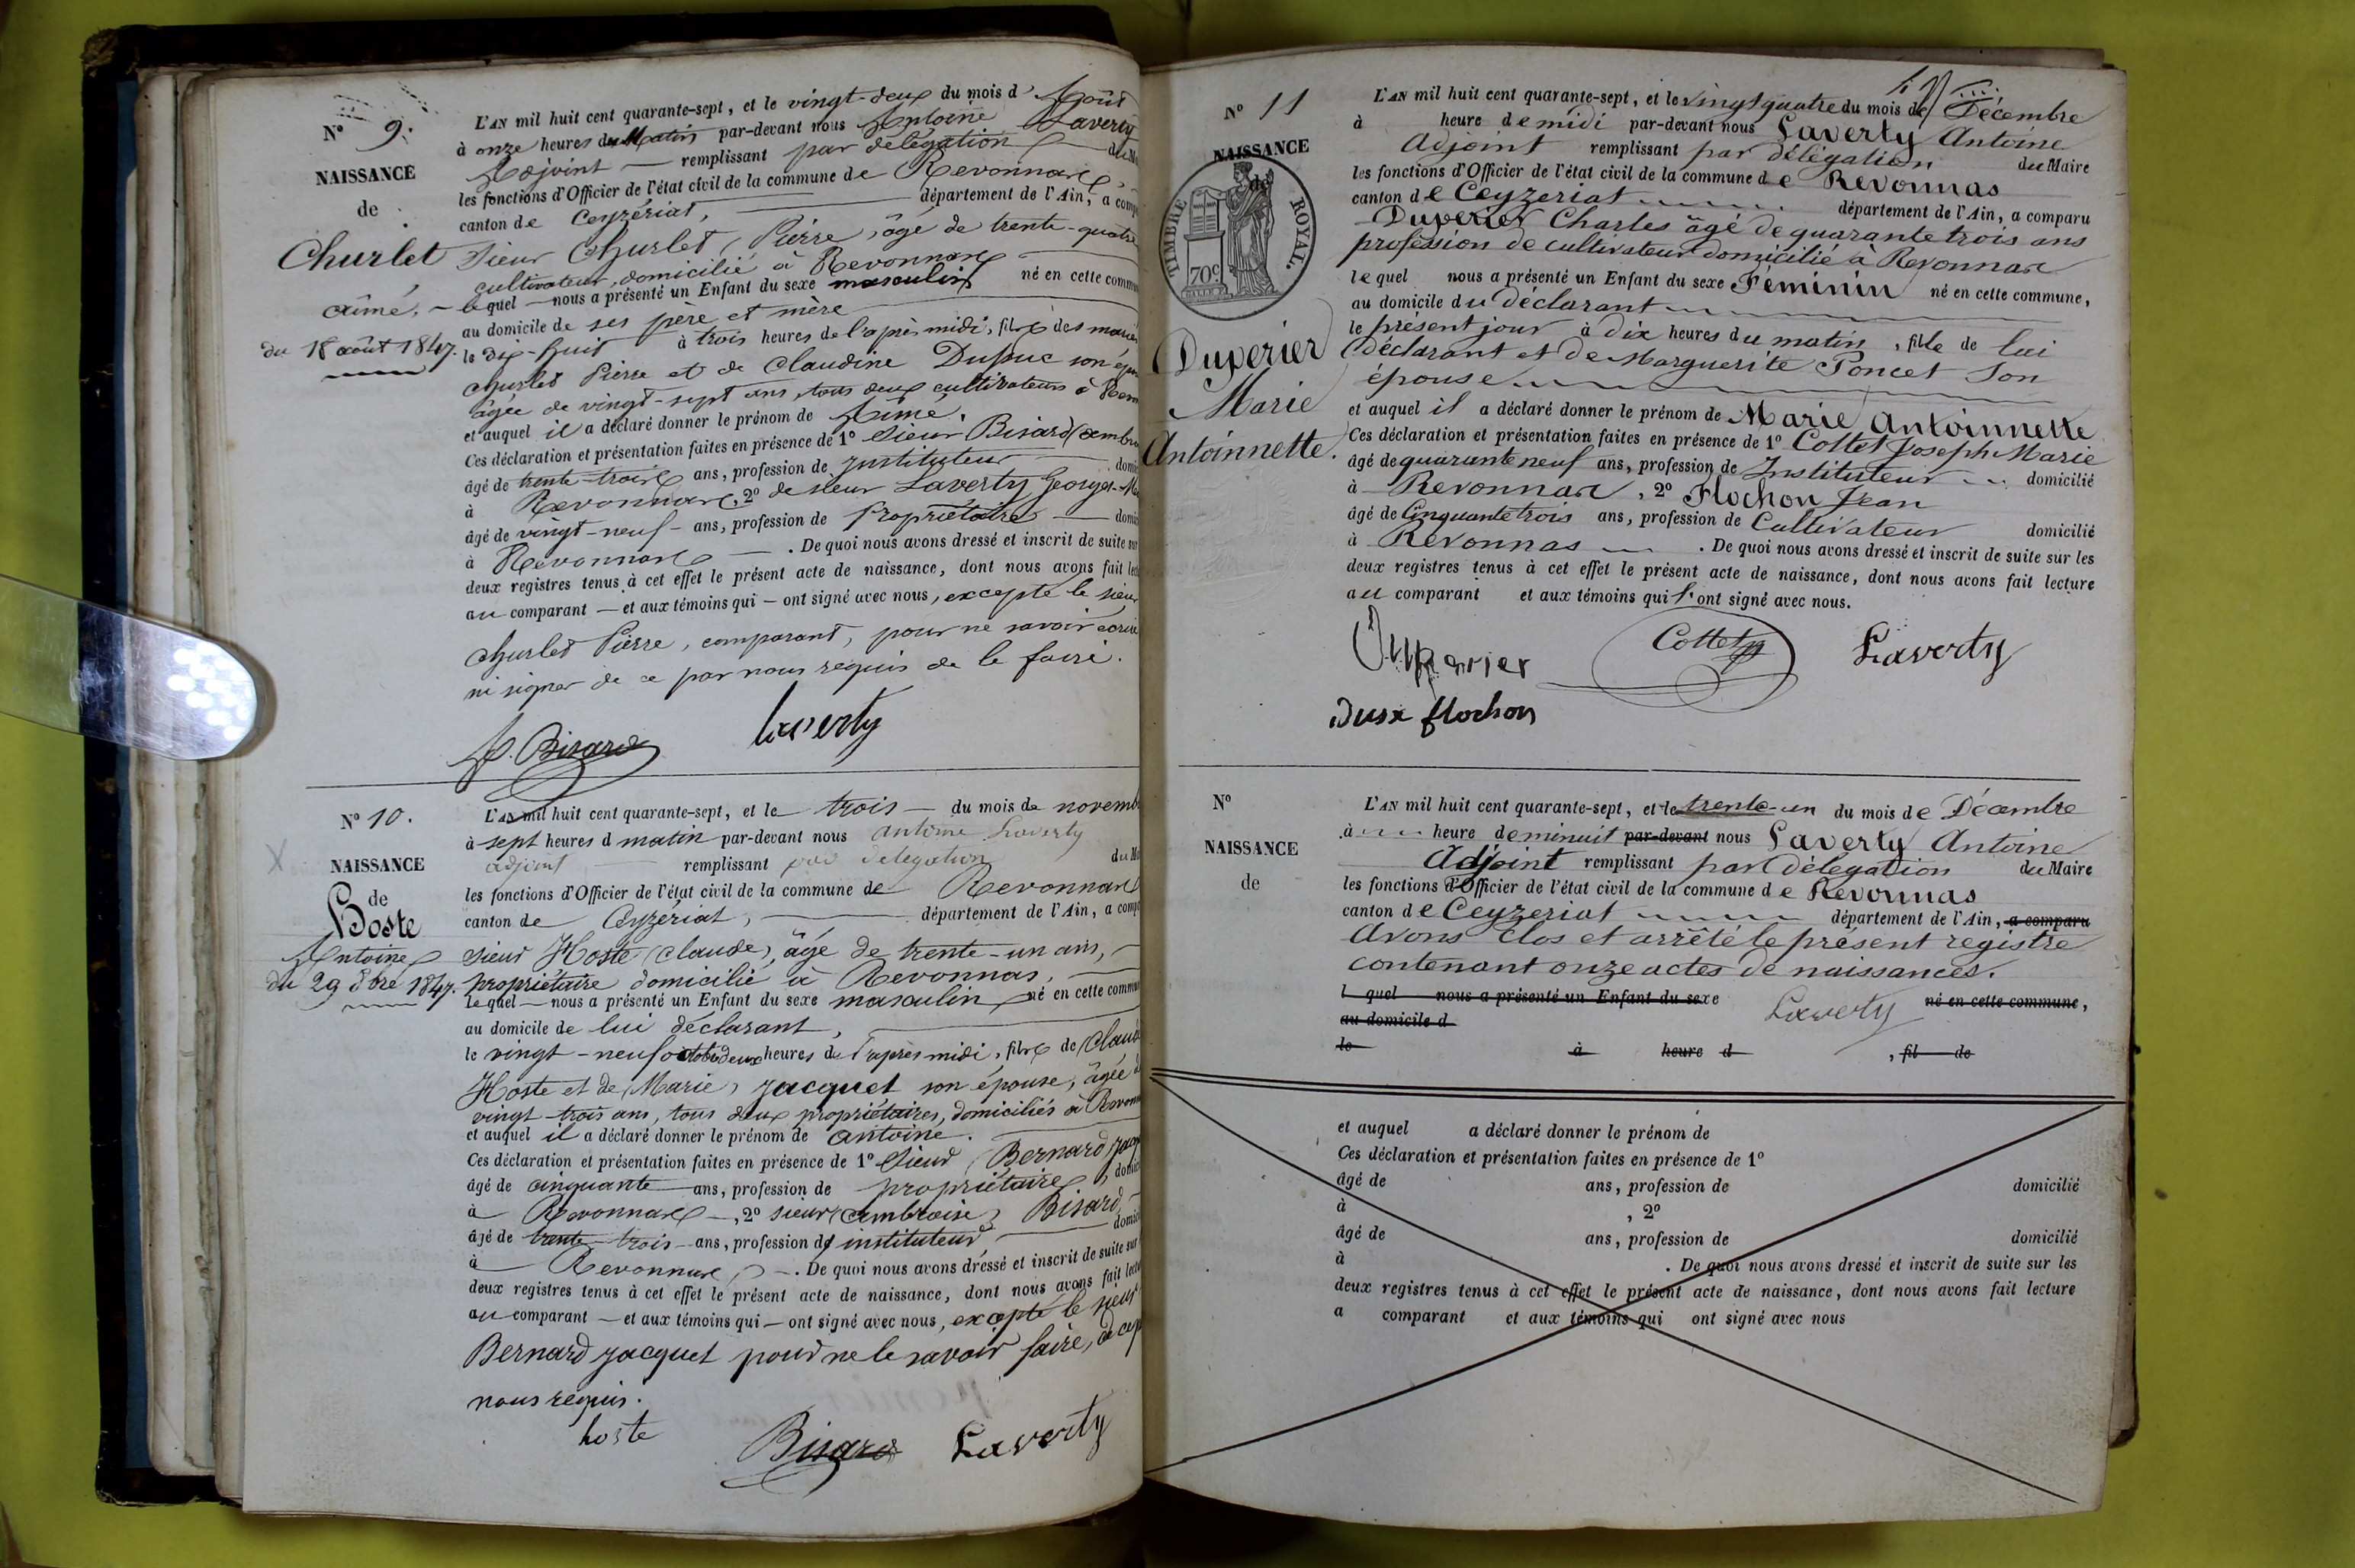 N° 9.
NAISSANCE
de
Churlet
aimé.
du 18 août 1847.
L'AN mil huit cent quarante-sept, et le vingt-deux du mois d'Août
à onze heures du Matin par-devant nous Antoine Laverty
Adjoint remplissant par délégation du
les fonctions d'Officier de l'état civil de la commune de Revonnas,
canton de Ceyzériat, département de l'Ain, a
sieur Churlet, Pierre, âgé de trente-quatre
cultivateur, domicilié à Revonnas
lequel nous a présenté un Enfant du sexe masculin né en cette
au domicile de ses père et mère
le dix-huit à trois heures de l'après midi, fils des
Churlet Pierre et de Claudine son
âgée de vingt-sept ans, tous deux cultivateurs à
et auquel il a déclaré donner le prénom de Aimé.
Ces déclaration et présentation faites en présence de 1° Sieur Bisard
âgé de trente-trois ans, profession de Instituteur
à Revonnas, 2° de sieur Laverty Georges
âgé de vingt-neuf ans, profession de Propriétaire
à Revonnas . De quoi nous avons dressé et inscrit de suite
deux registres tenus à cet effet le présent acte de naissance, dont nous avons fait
au comparant et aux témoins qui ont signé avec nous, excepté le sieur
Churlet Pierre, comparant, pour ne savoir écrire
ni signer de ce par nous requis de le faire.
A. Bisard laverty
N° 10.
NAISSANCE
de
Hoste
Antoine
du 29 8bre 1847.
L'AN mil huit cent quarante-sept, et le trois du mois de
à sept heures d matin par-devant nous antoine Laverty
adjoint remplissant par delegation du
les fonctions d'Officier de l'état civil de la commune de Revonnas
canton de Ceyzériat, département de l'Ain, a
sieur Hoste (Claude), âgé de trente-un ans,
propriétaire domicilié à Revonnas,
lequel nous a présenté un Enfant du sexe masculin né en cette
au domicile de lui déclarant,
le vingt-neuf octobre deux heures de l'après midi, fils de
Hoste et de (Marie) Jacquet son épouse, âgée
vingt-trois ans, tous deux propriétaires, domiciliés à
et auquel il a déclaré donner le prénom de antoine.
Ces déclaration et présentation faites en présence de 1° Sieur Bernard
âgé de cinquante ans, profession de propriétaire,
à Revonnas, 2° sieur (ambroise) Bisard
âgé de trente-trois ans, profession d'instituteur,
à Revonnas . De quoi nous avons dressé et inscrit de suite sur
deux registres tenus à cet effet le présent acte de naissance, dont nous avons fait
au comparant et aux témoins qui ont signé avec nous, excepté le sieur
Bernard Jacquet pour ne le savoir faire, de ce
nous requis.
hoste Bisard Laverty
N° 11
NAISSANCE
de
TIMBRE ROYAL.
70c
Duperier
Marie
Antoinnette.
L'AN mil huit cent quarante-sept, et le vingt quatre du mois de Décembre
à heure de midi par-devant nous Laverty Antoine
Adjoint remplissant par délégation du Maire
les fonctions d'Officier de l'état civil de la commune de Revonnas
canton de Ceyzeriat département de l'Ain, a comparu
Duperier Charles âgé de quarante trois ans
profession de cultivateur domicilié à Revonnas
lequel nous a présenté un Enfant du sexe Féminin né en cette commune,
au domicile du déclarant
le présent jour à dix heures du matin, fille de lui
déclarant et de Marguerite Poncet son
épouse
et auquel il a déclaré donner le prénom de Marie Antoinnette
Ces déclaration et présentation faites en présence de 1° Cottet Joseph Marie
âgé de quarante neuf ans, profession de Instituteur domicilié
à Revonnas, 2° Flochon Jean
âgé de Cinquante trois ans, profession de Cultivateur domicilié
à Revonnas . De quoi nous avons dressé et inscrit de suite sur les
deux registres tenus à cet effet le présent acte de naissance, dont nous avons fait lecture
au comparant et aux témoins qui l'ont signé avec nous.
Duperier Cottet Laverty
flochon
N°
NAISSANCE
de
L'AN mil huit cent quarante-sept, et le trente-un du mois de Décembre
à heure de minuit par-devant nous Laverty Antoine
Adjoint remplissant par délégation du Maire
les fonctions d'Officier de l'état civil de la commune de Revonnas
canton de Ceyzeriat département de l'Ain, a comparu
Avons clos et arrêté le présent registre
contenant onze actes de naissances.
l quel nous a présenté un Enfant du sexe Laverty né en cette commune,
au domicile d
le à heure d , fil de
et auquel a déclaré donner le prénom de
Ces déclaration et présentation faites en présence de 1°
âgé de ans, profession de domicilié
à , 2°
âgé de ans, profession de domicilié
à . De quoi nous avons dressé et inscrit de suite sur les
deux registres tenus à cet effet le présent acte de naissance, dont nous avons fait lecture
a comparant et aux témoins qui ont signé avec nous